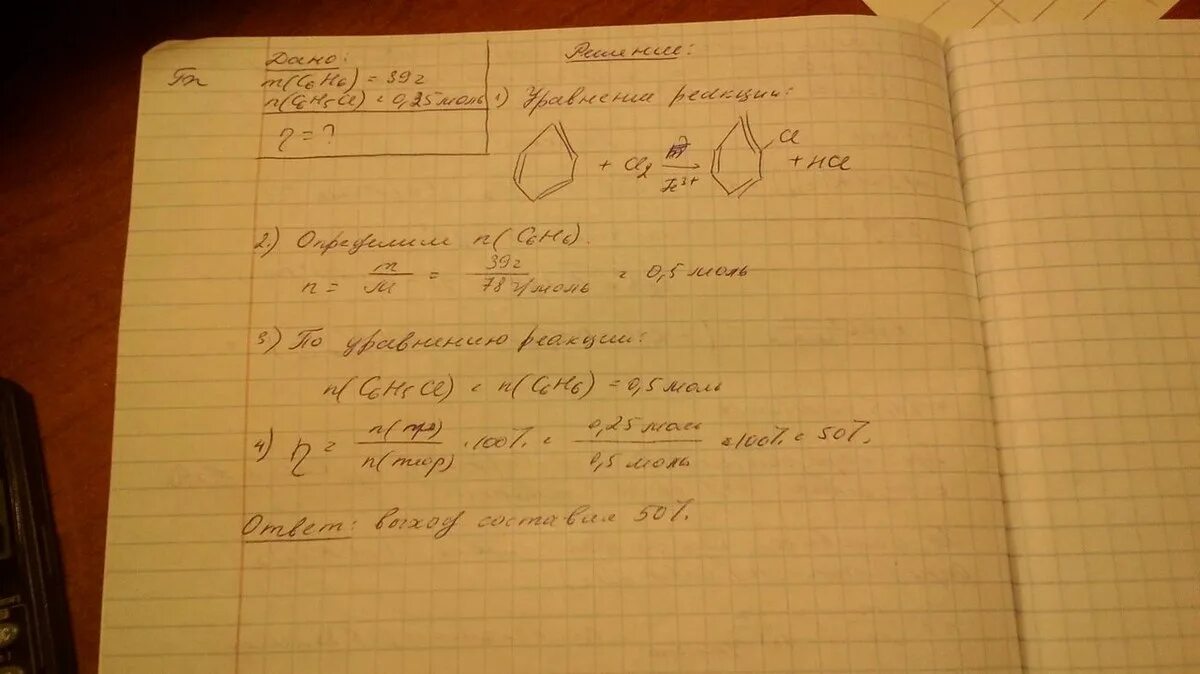 Дано:
m(C₆H₆) = 39 г
n(C₆H₅Cl) = 0,25 моль
η = ?
Решение:
1) Уравнение реакции:
+ Cl₂ Fe³⁺ Cl + HCl
2.) Определим n(C₆H₆).
n = m/M = 39 г/78 г/моль = 0,5 моль
3) По уравнению реакции:
n(C₆H₅Cl) = n(C₆H₆) = 0,5 моль
4) η = n(пр)/n(теор) · 100% = 0,25 моль/0,5 моль · 100% = 50%.
Ответ: выход составил 50%.